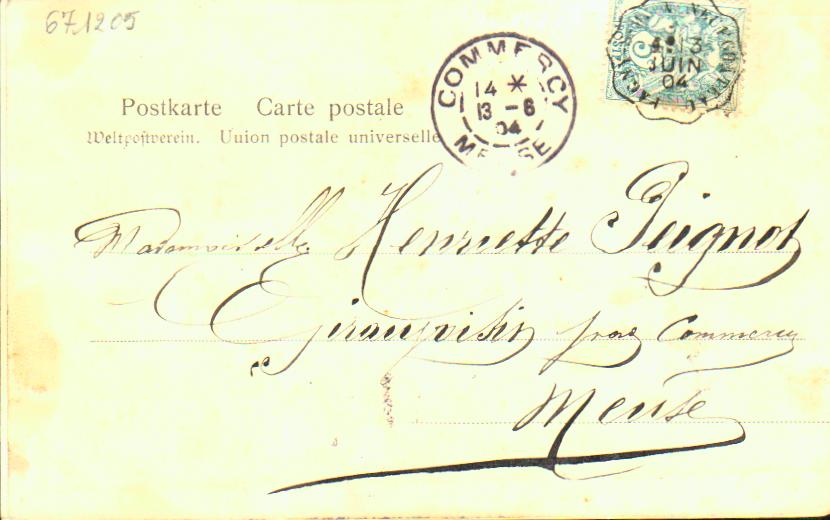 671205
COMMERCY
14 *
13 - 6
04
MEUSE
4 * 13
JUIN
04
Postkarte Carte postale
Weltpostverein. Uuion postale universelle
Mademoiselle Henriette Peignot
Girauvoisin près Commercy
Meuse